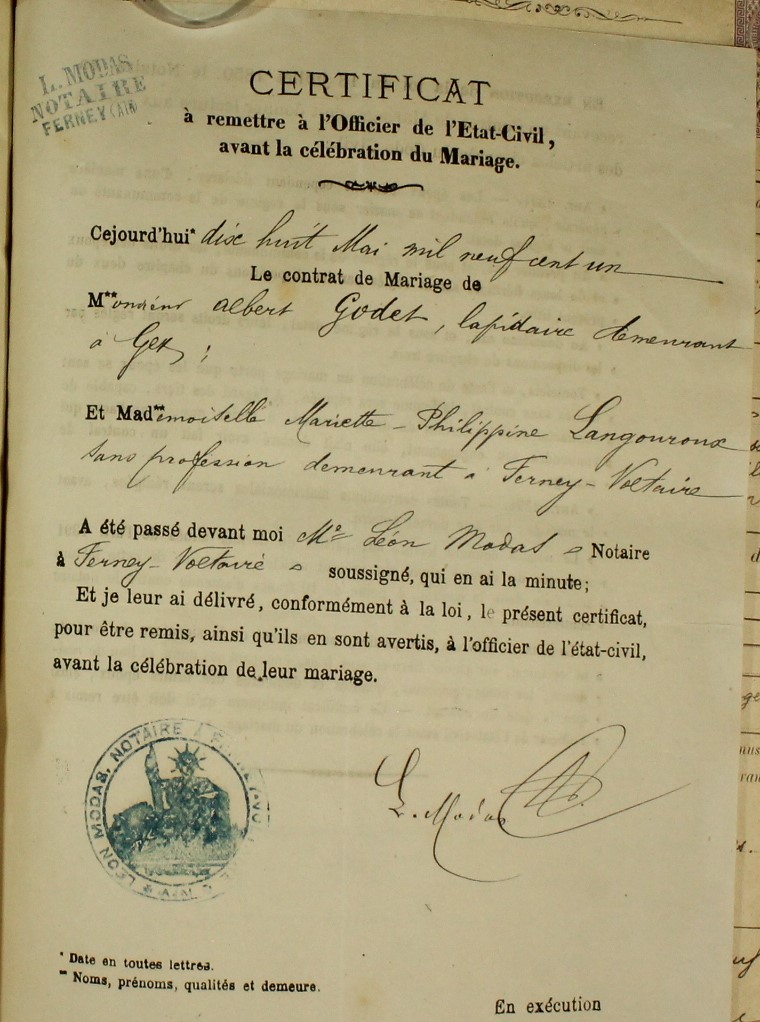 L. MODAS
NOTAIRE
FERNEY (AIN)
CERTIFICAT
à remettre à l'Officier de l'Etat-Civil,
avant la célébration du Mariage.
Cejourd'hui* dix huit Mai mil neuf cent un
Le contrat de Mariage de
M**onsieur albert Godet, lapidaire demeurant
à Gex ;
Et Mad**emoiselle Mariette-Philippine Langouroux
sans profession demeurant à Ferney-Voltaire
A été passé devant moi Me Léon Modas Notaire
à Ferney-Voltaire soussigné, qui en ai la minute;
Et je leur ai délivré, conformément à la loi, le présent certificat,
pour être remis, ainsi qu'ils en sont avertis, à l'officier de l'état-civil,
avant la célébration de leur mariage.
LEON MODAS, NOTAIRE A
L. Modas
* Date en toutes lettres.
** Noms, prénoms, qualités et demeure.
En exécution